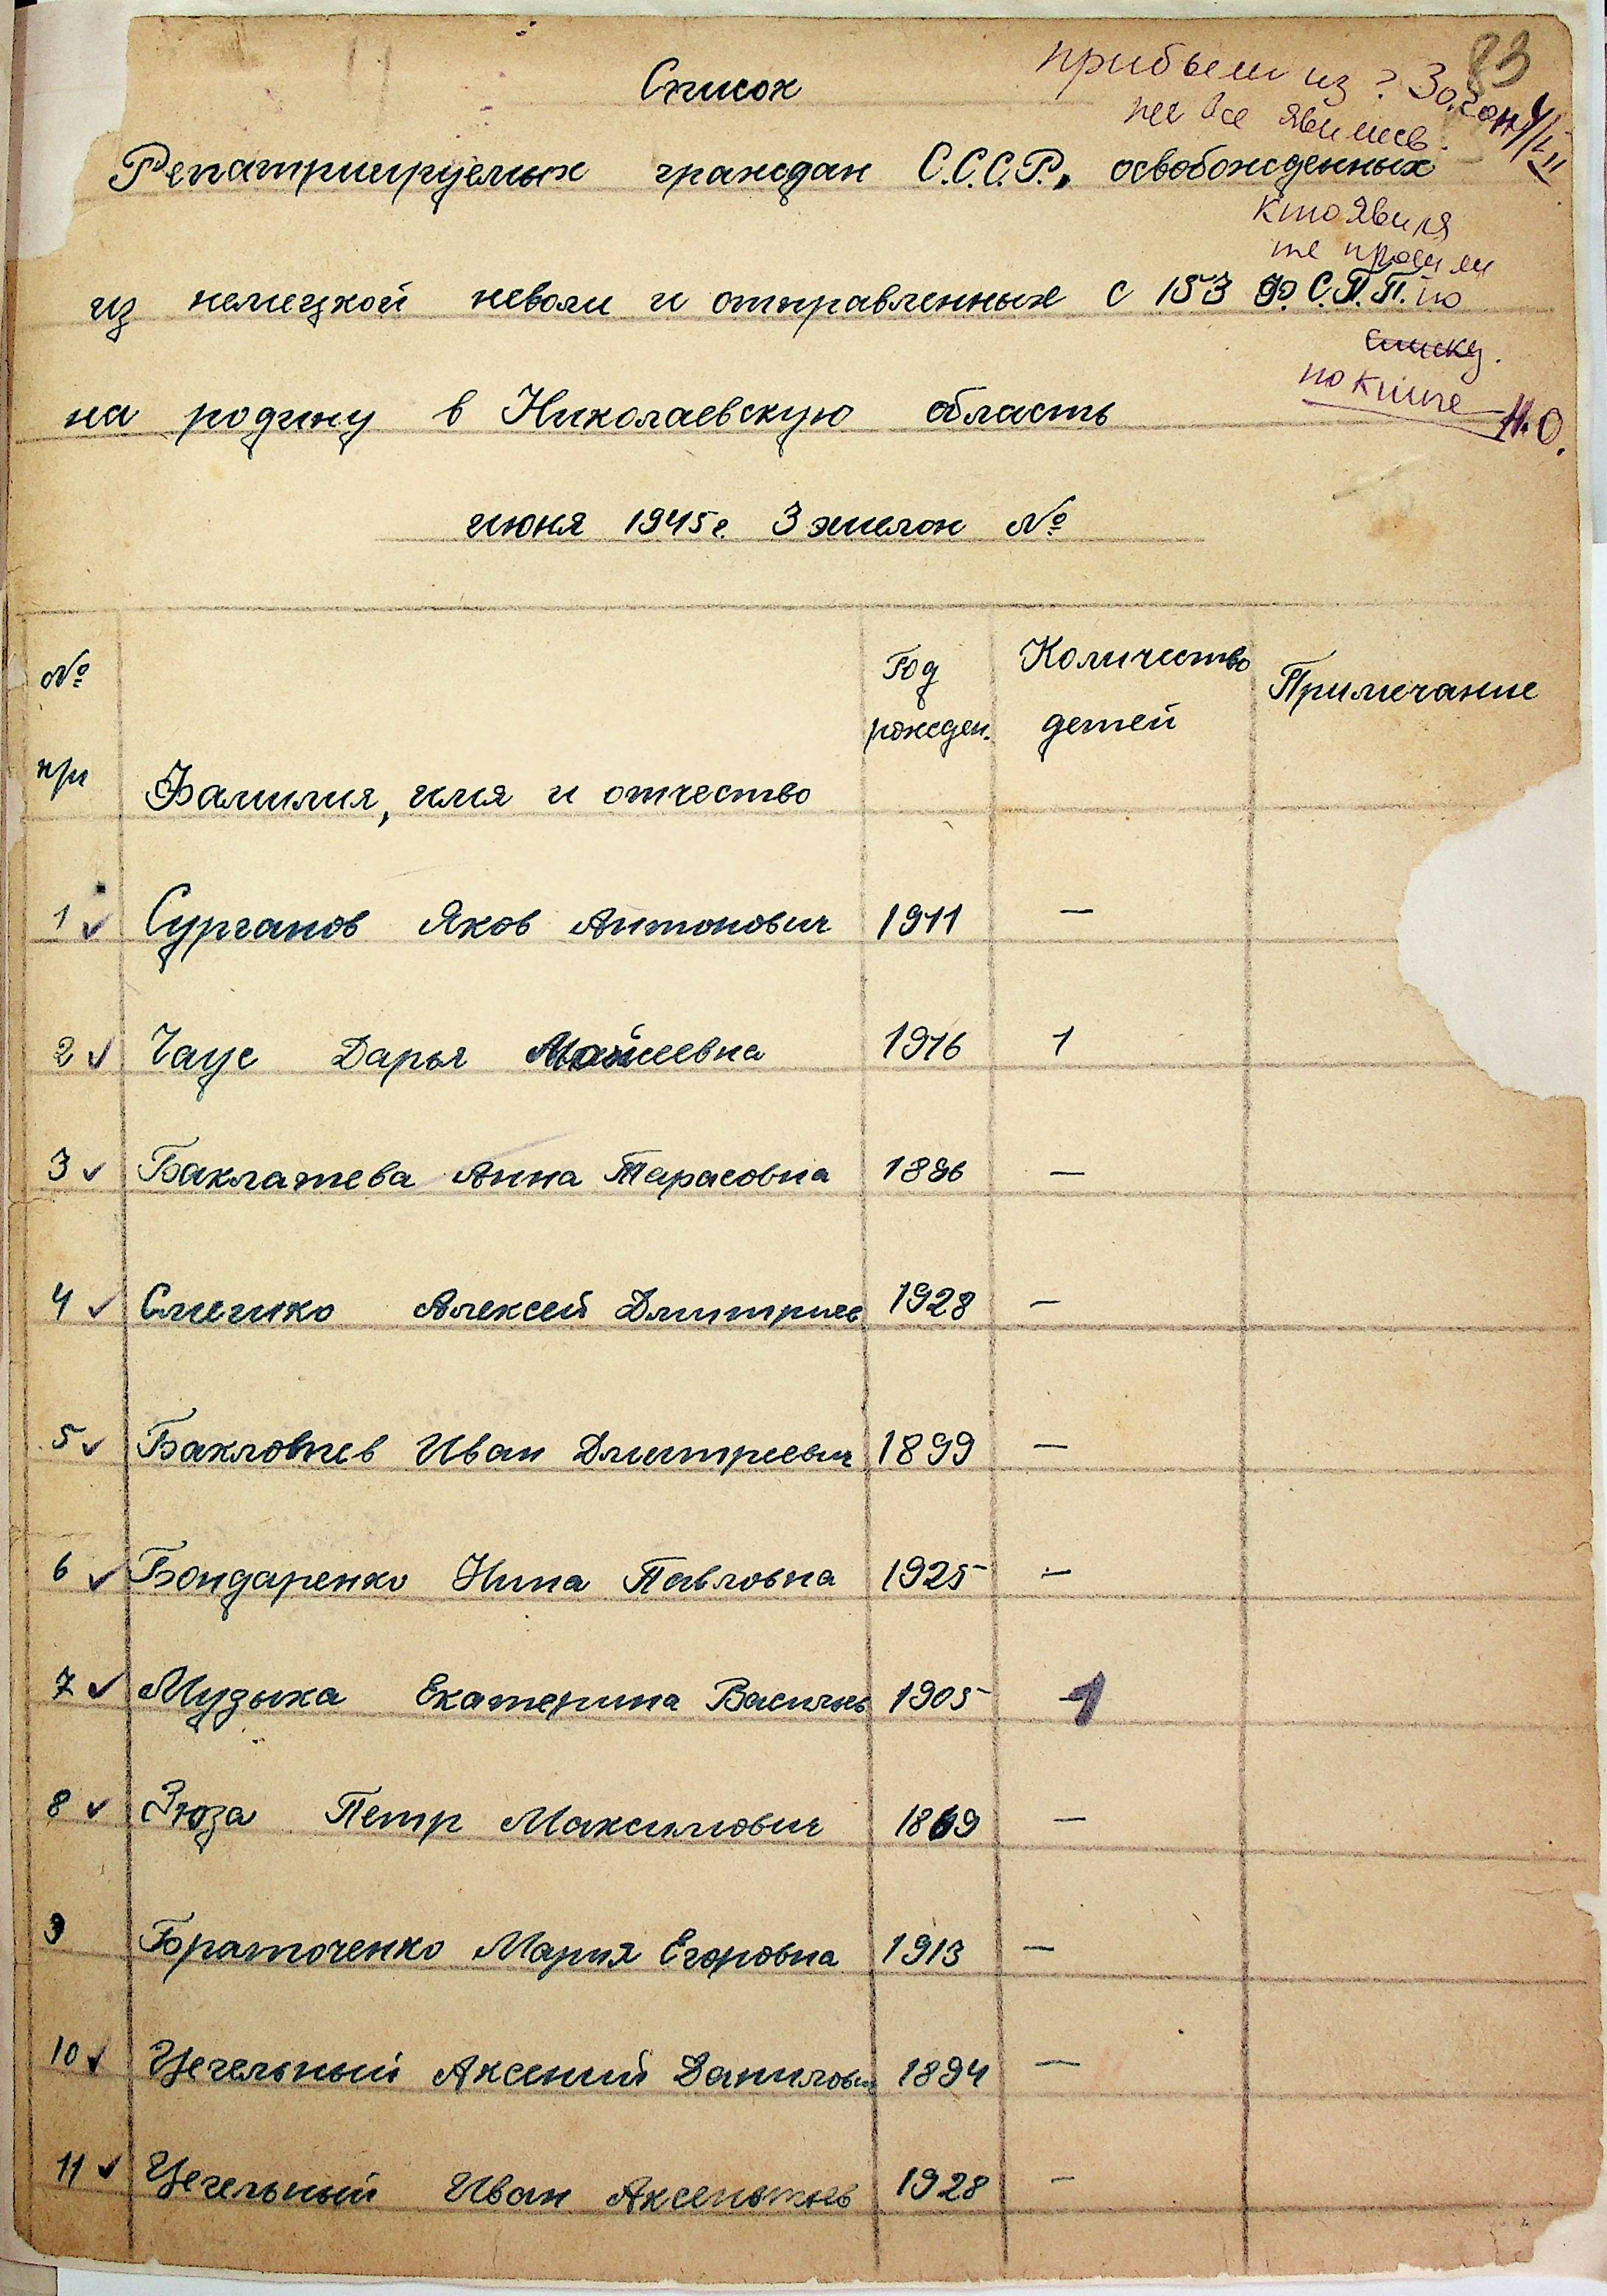 83
прибыли из ?
не все явились.
Список
Репатриируемых граждан С.С.С.Р., освобожденных
кто явился
те прошли
из немецкой неволи и отправленных с 153 ф. С.П.П. по
списку.
по книге
Н.О.
на родину в Николаевскую область
июня 1945г. Эшелон №
№ п/п Фамилия, имя и отчество Год рожден. Количество детей Примечание
1 ✓ Сурганов Яков Антонович 1911 —
2 ✓ Чаус Дарья Мойсеевна 1916 1
3 ✓ Баклатева Анна Тарасовна 1896 —
4 ✓ Слюгико Алексей Дмитриев 1928 —
5 ✓ Баклатев Иван Дмитриевич 1899 —
6 ✓ Бондаренко Нина Павловна 1925 —
7 ✓ Музыка Екатерина Васильев 1905 1
8 ✓ Зюза Петр Максимович 1869 —
9 Браточенко Мария Егоровна 1913 —
10 ✓ Цегельный Аксений Данилович 1894 —
11 ✓ Цегельный Иван Аксентьев 1928 —